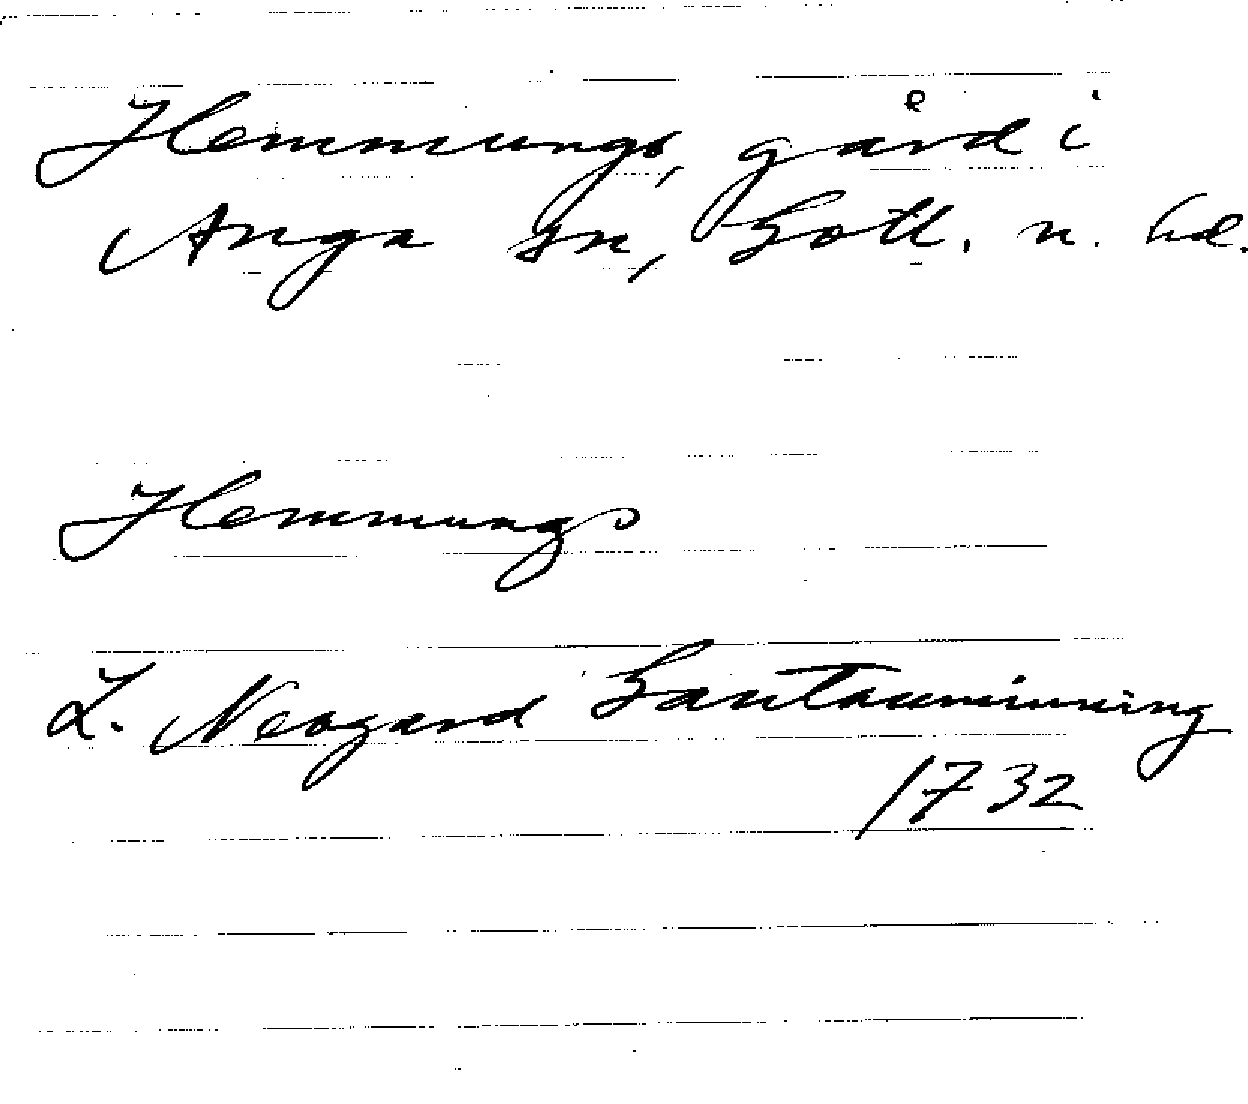 Hemmungs, gård i
Anga sn, Gotl. n. hd.
Hemmungs
L. Neogard Gautauminning
1732